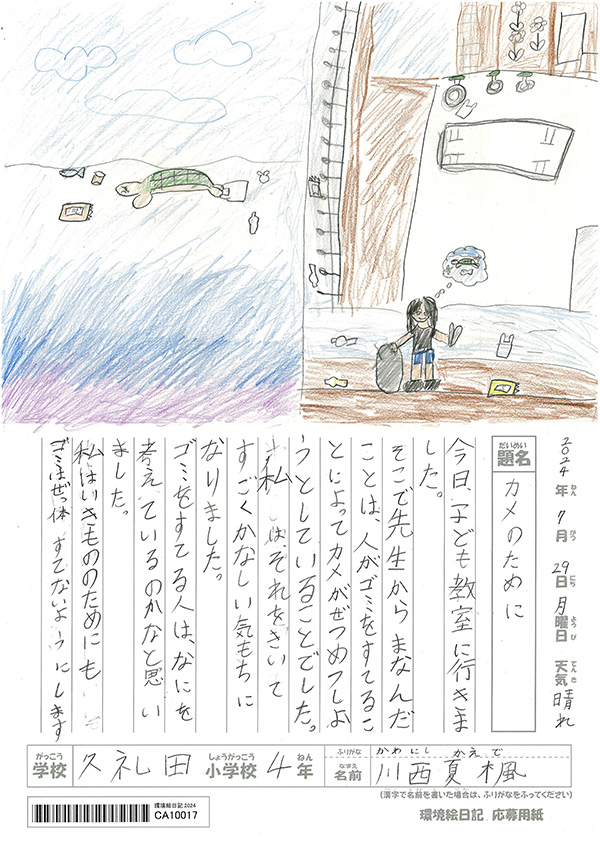 2024年ねん 7月がつ 29日にち 月曜日ようび 天気てんき 晴れ
だいめい
題名
カメのために
今日、子ども教室に行きま
した。
そこで先生からまなんだ
ことは、人がゴミをすてるこ
とによってカメがぜつめつしよ
うとしていることでした。
私は、それをきいて
すごくかなしい気もちに
なりました。
ゴミをすてる人は、なにを
考えているのかなと思い
ました。
私はいきもののためにも
ゴミはぜっ体すてないようにします
がっこう
学校
久礼田
しょうがっこう
小学校
4
ねん
年
ふりがな
かわにし かえで
なまえ
名前
川西夏楓
(漢字で名前を書いた場合は、ふりがなをふってください)
環境絵日記2024
CA10017
環境絵日記 応募用紙